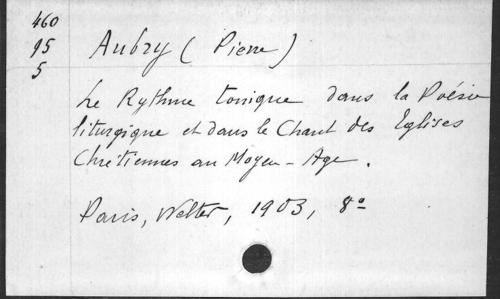 460
95
5
Aubry (Pierre)
Le Rythme tonique dans la Poésie
liturgique et dans le Chant des Eglises
Chrétiennes au Moyen-Age.
Paris, Welter, 1903, 8º